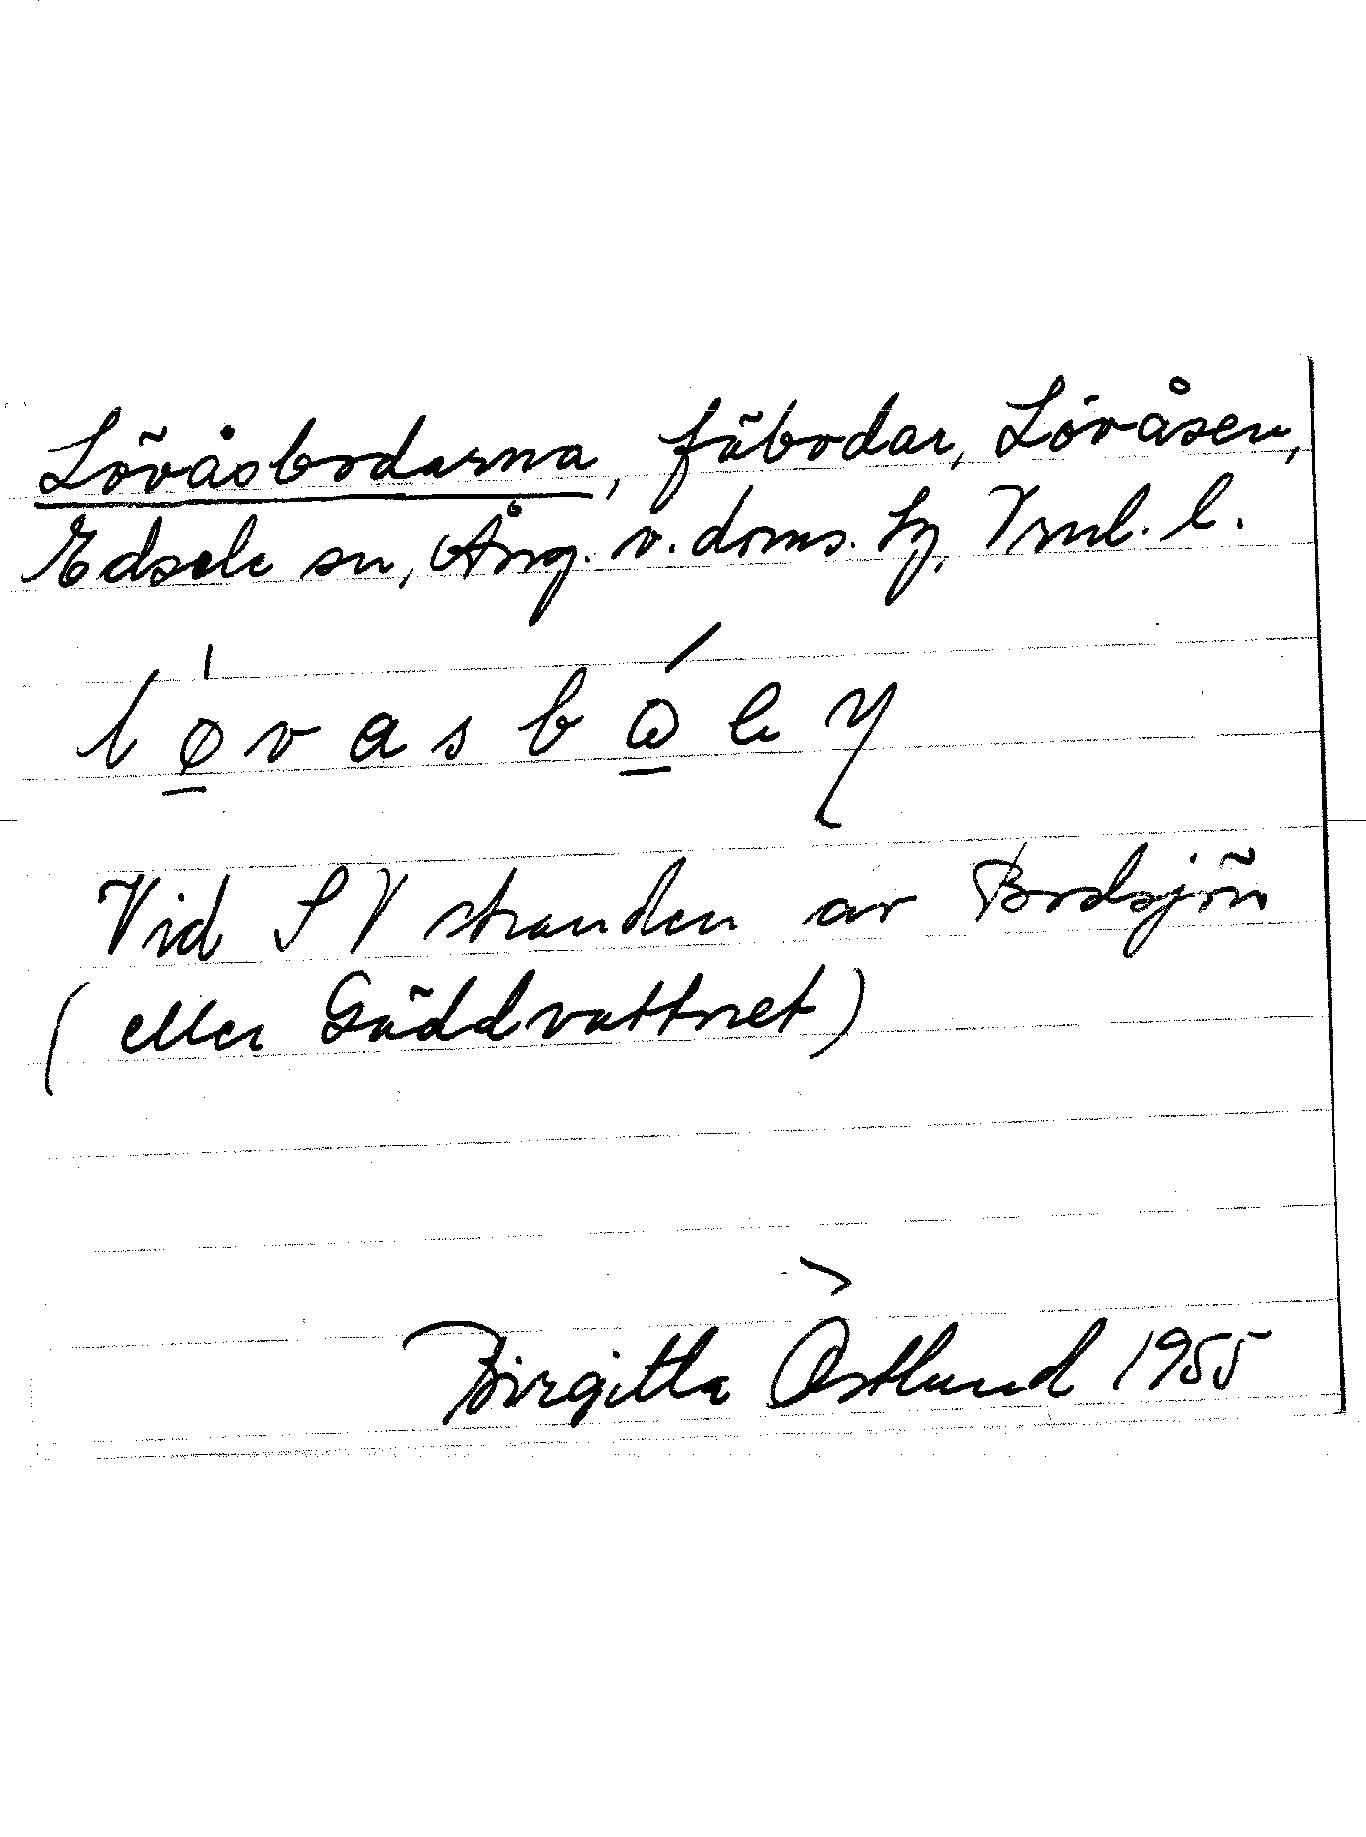 Lövåsbodarna, fäbodar, Lövåsen,
Edsele sn, Ång. v. doms. hz, Vrnl. l.
Vid SV stranden av Bodsjön
(eller Gäddvattnet)
Birgitta Östlund 1955